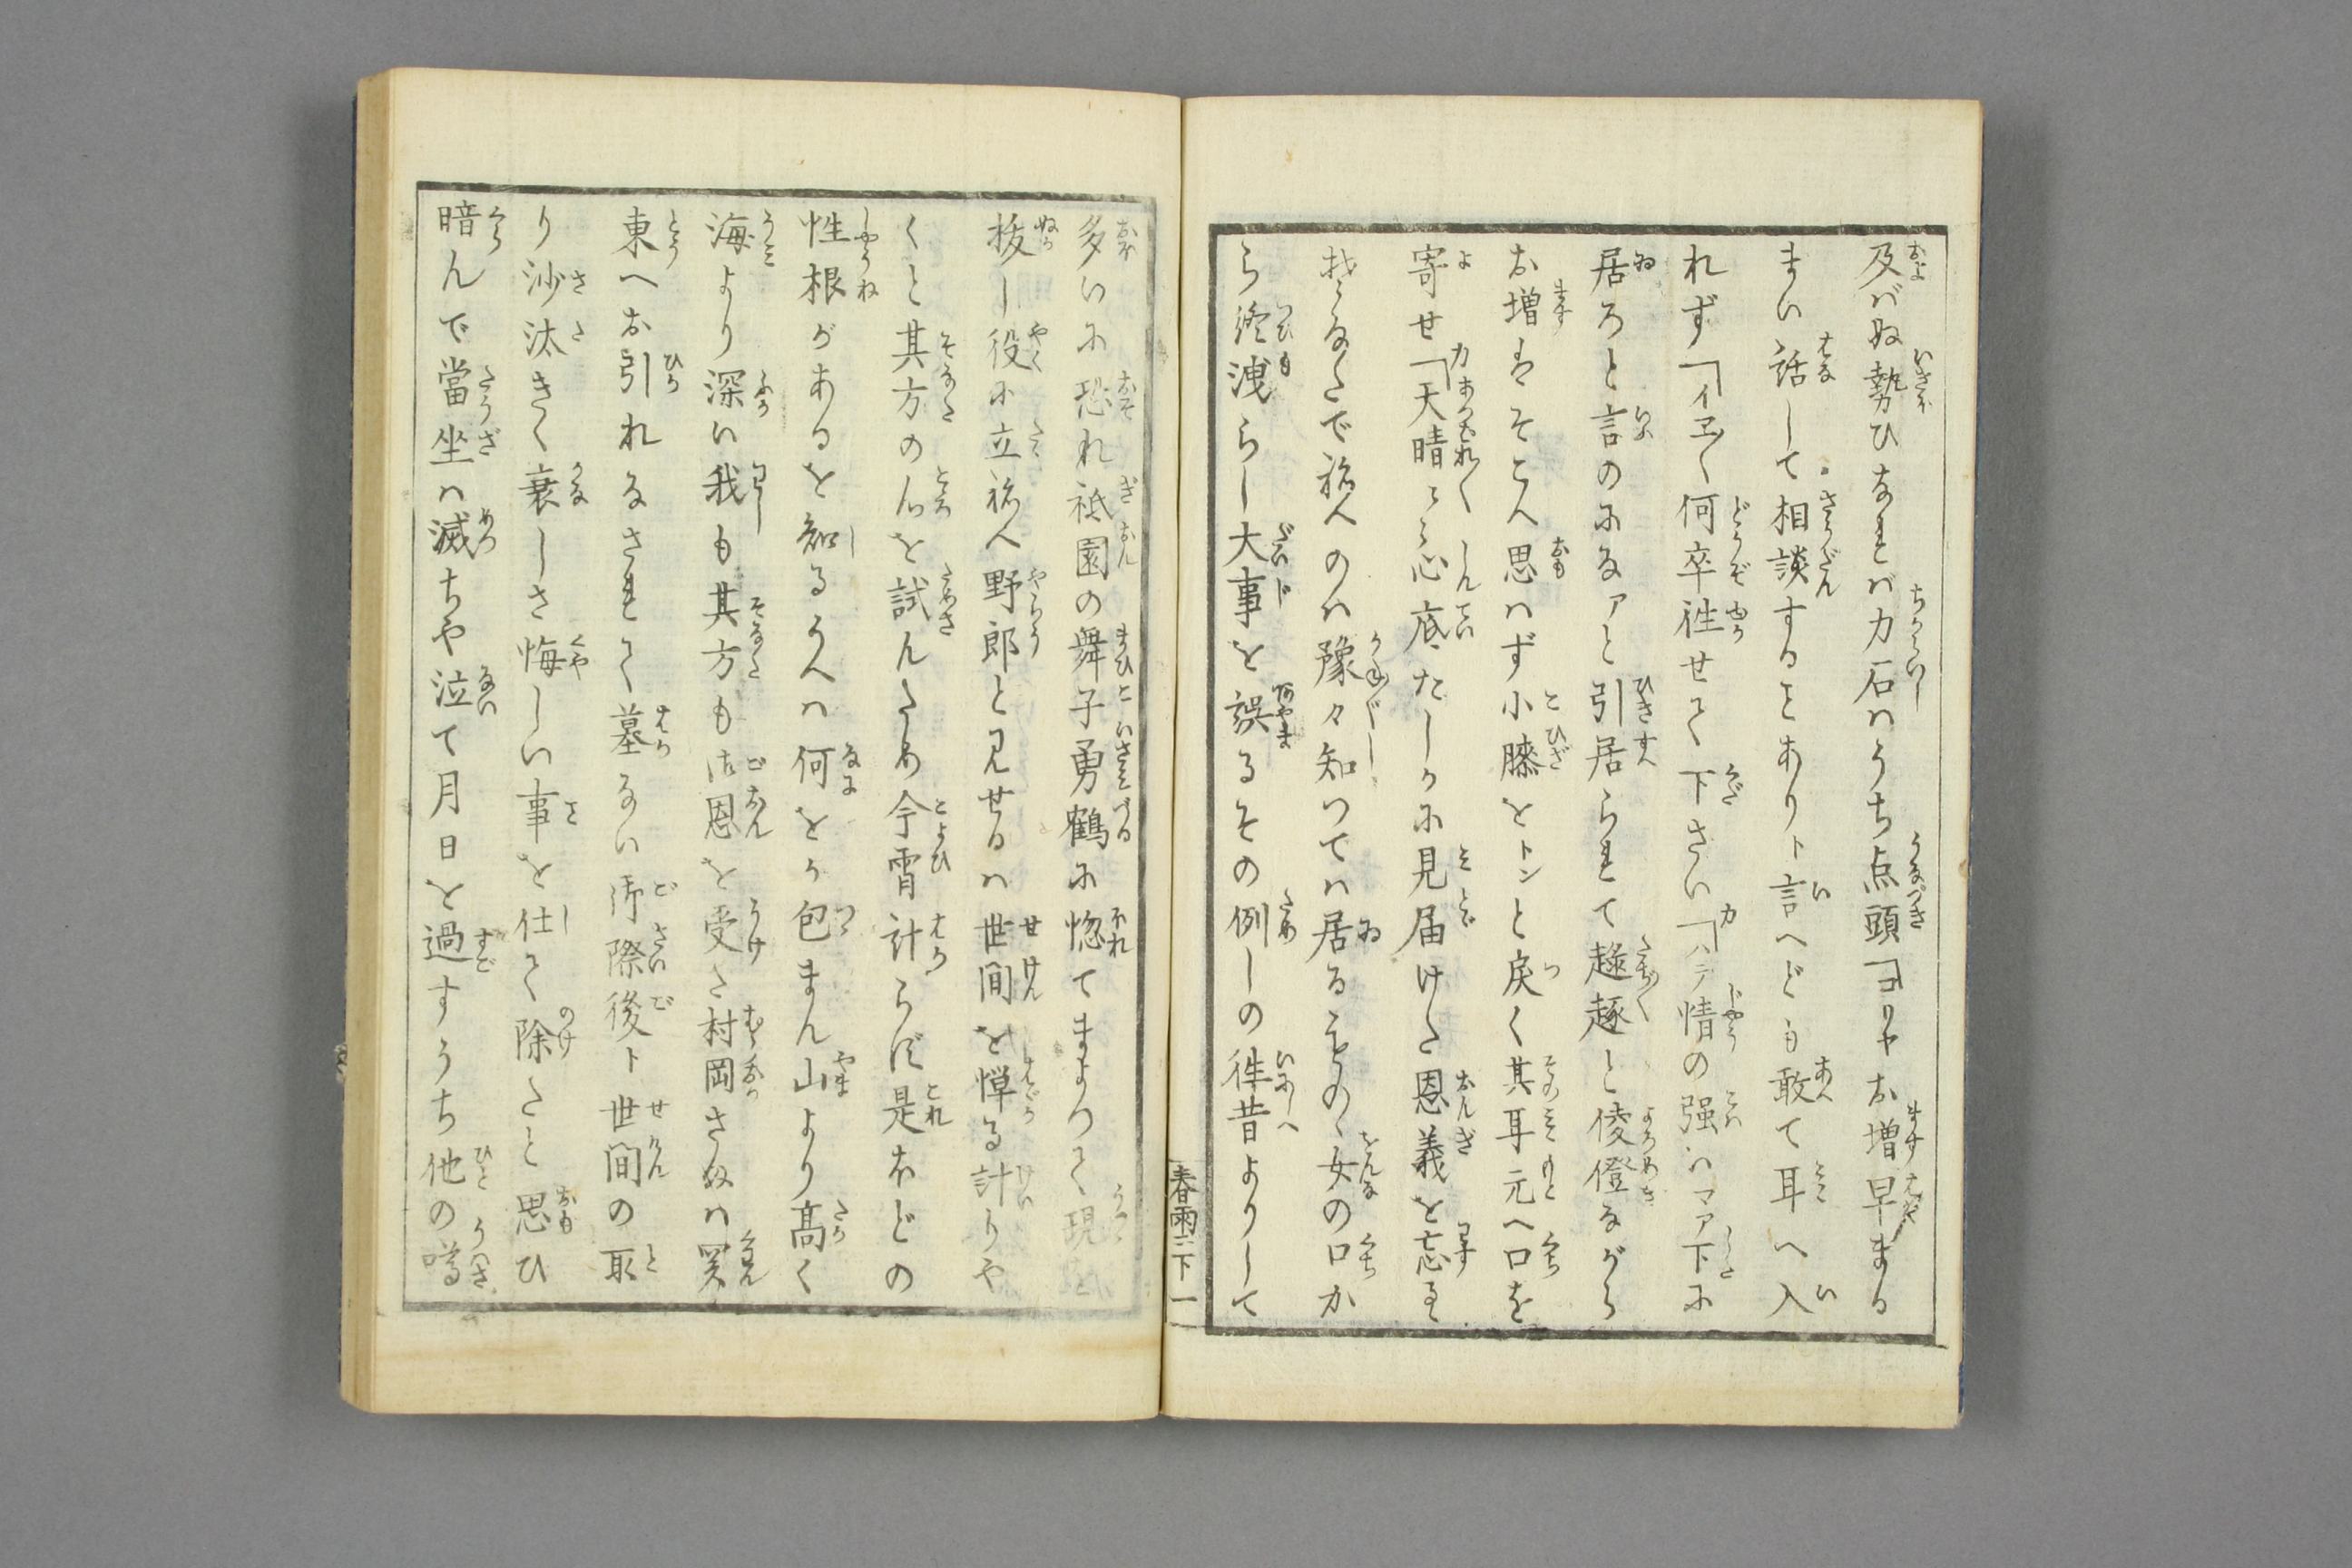 及バぬ勢ひなれバ力石ハうち点頭「コリヤお増早まる
まい話して相談することあり卜言へども敢て耳へ入
れず「イヱ〳〵何卒徃せて下さい「ハテ情の強ハマア下に
居ろと言のになアと引居られて趦趑と倰僜ながら
お増はそこへ思ハず小膝をトンと戻く其耳元へ口を
寄せ「天晴〻〻心底たしかに見届けた恩義を忘る
そなたで秘へのハ豫々知つてハ居るものゝ女の口か
ら終洩らし大事を誤るその例しの徃昔よりして
春雨二下 一
多いに恐れ祗園の舞子勇鶴に惚てまよつて現
抜し役に立秘へ野郎と見せるハ世間を憚る計りや
くと其方の心を試んため今宵計らず是ほどの
性根があるを知るうへハ何をか包まん山より高く
海より深い我も其方も御恩を受た村岡さぬハ関
東へお引れなされて墓ない御際後卜世間の取
り沙汰きく衰しさ悔しい事を仕て除たと思ひ
暗んで當坐ハ滅ちや泣て月日を過すうち他の噂